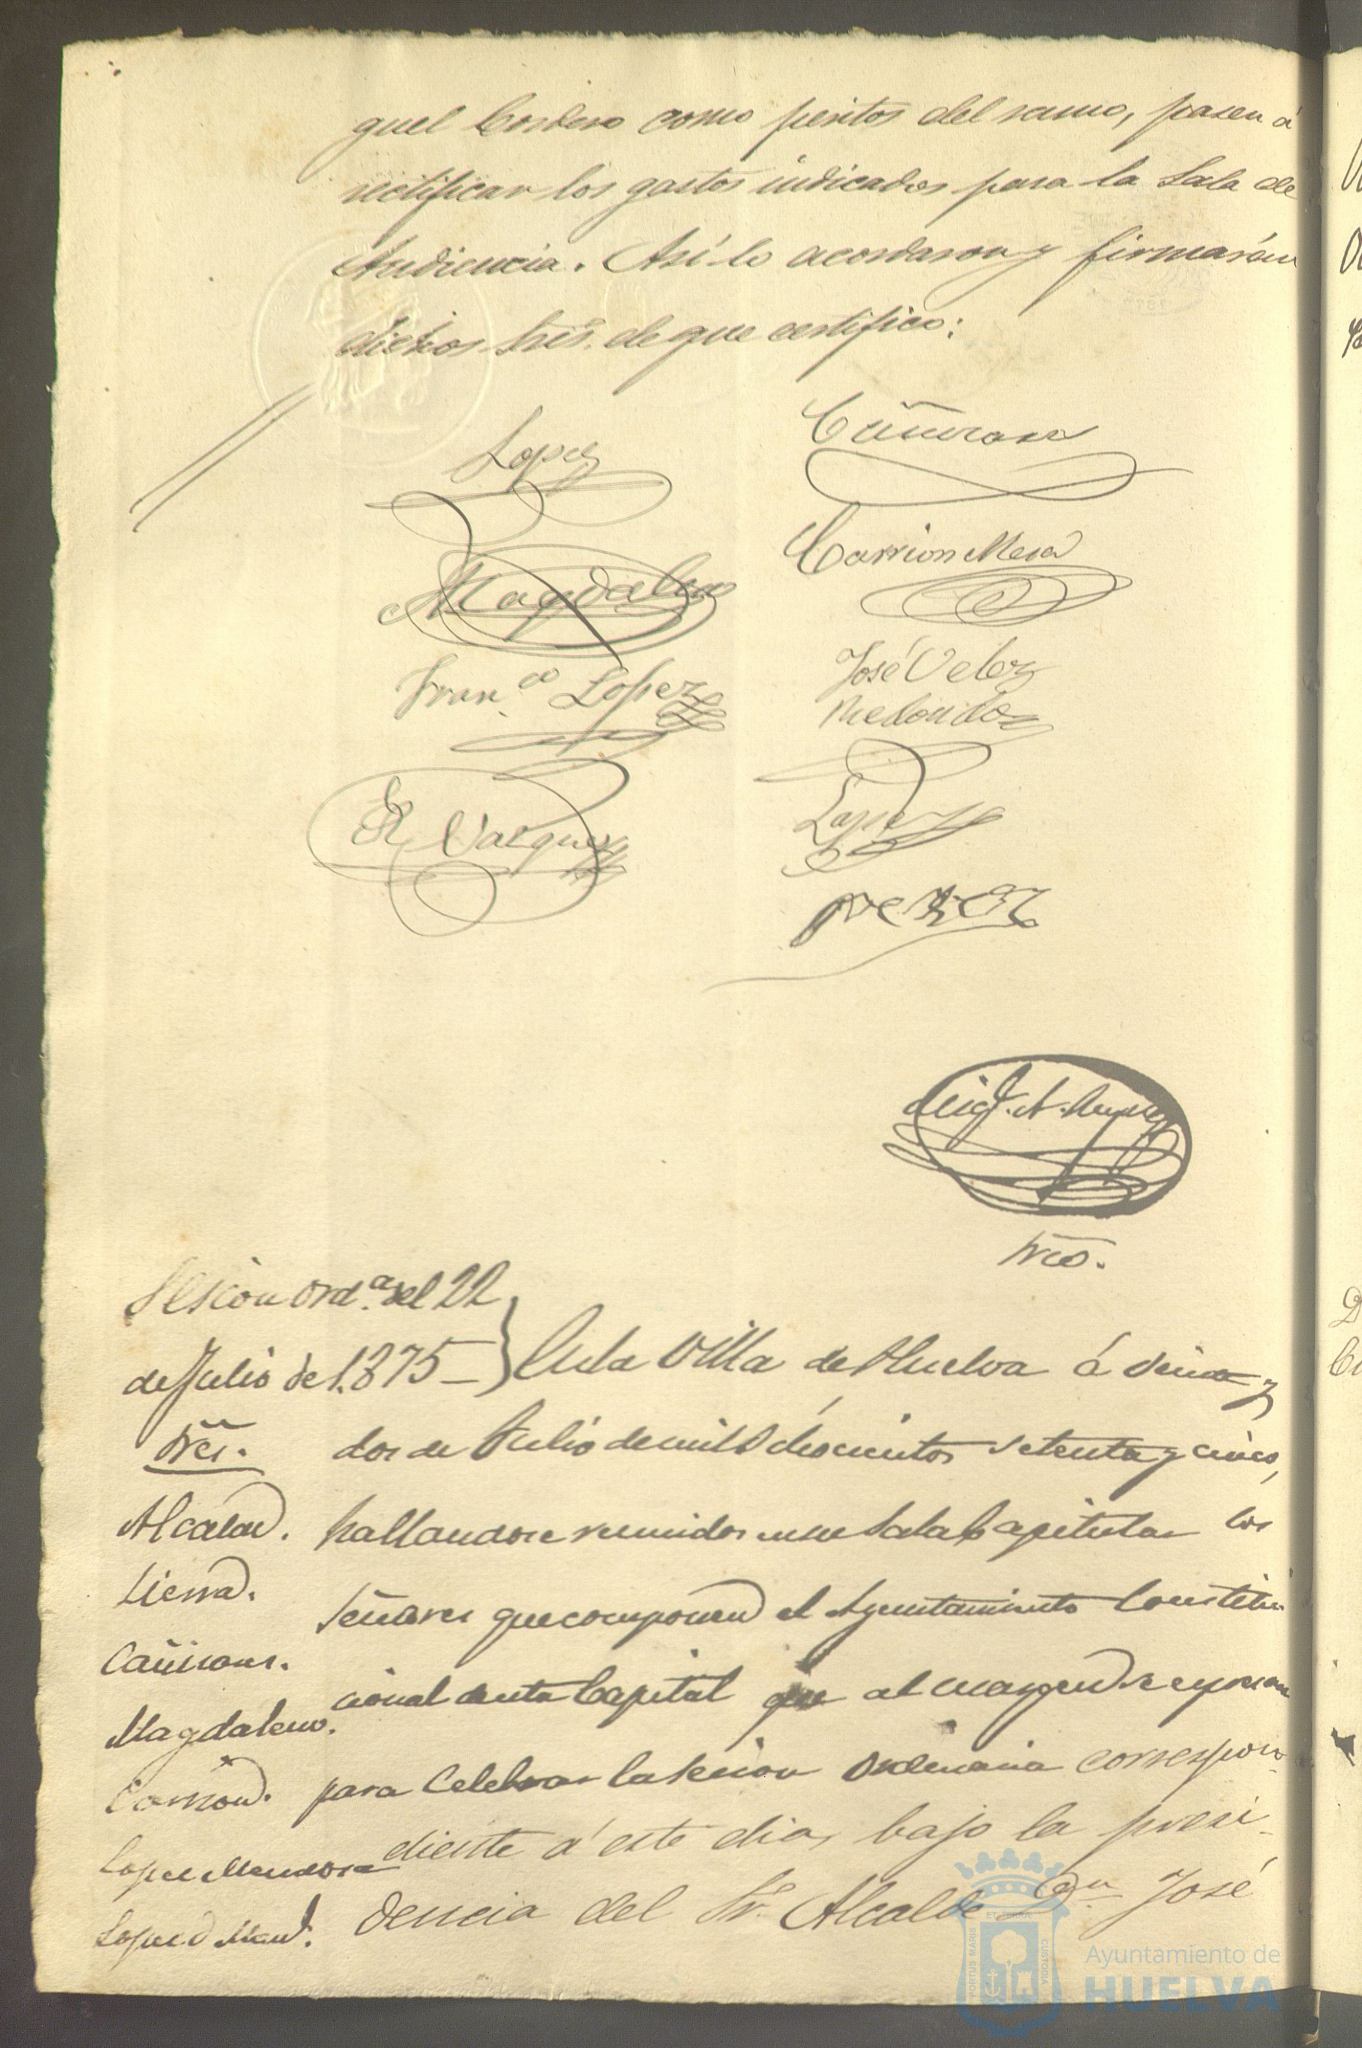 guel Cordero como peritos del ramo, pasen á
rectificar los gastos indicados para la Sala de
Audiencia. Así lo acordaron y firmarán
dichos Sres. de que certifico:
Lopez
Cañizares
Magdaleno
Carrion Mesa
Franco. Lopez
José Velez
Redondo
R Vazquez
Lopez
Perez
Srio.
Sesion ordª. del 22
de Julio de 1.875
Sres.
Alcalde.
Sierra.
Cañizares.
Magdaleno.
Carrion.
Lopez Mendoza
Lopez
En la Villa de Huelva á veinte y
dos de Julio de mil ochocientos setenta y cinco,
hallandose reunidos en su Sala Capitular los
Señores que componen el Ayuntamiento Constitu
cional de esta Capital que al margen se espresan
para Celebrar la Sesion Ordinaria correspon
diente á este dia, bajo la presi-
dencia del Sr. Alcalde Dn. José
PORTUS MARIS
ET TERRAE
CUSTODIA
Ayuntamiento de
HUELVA